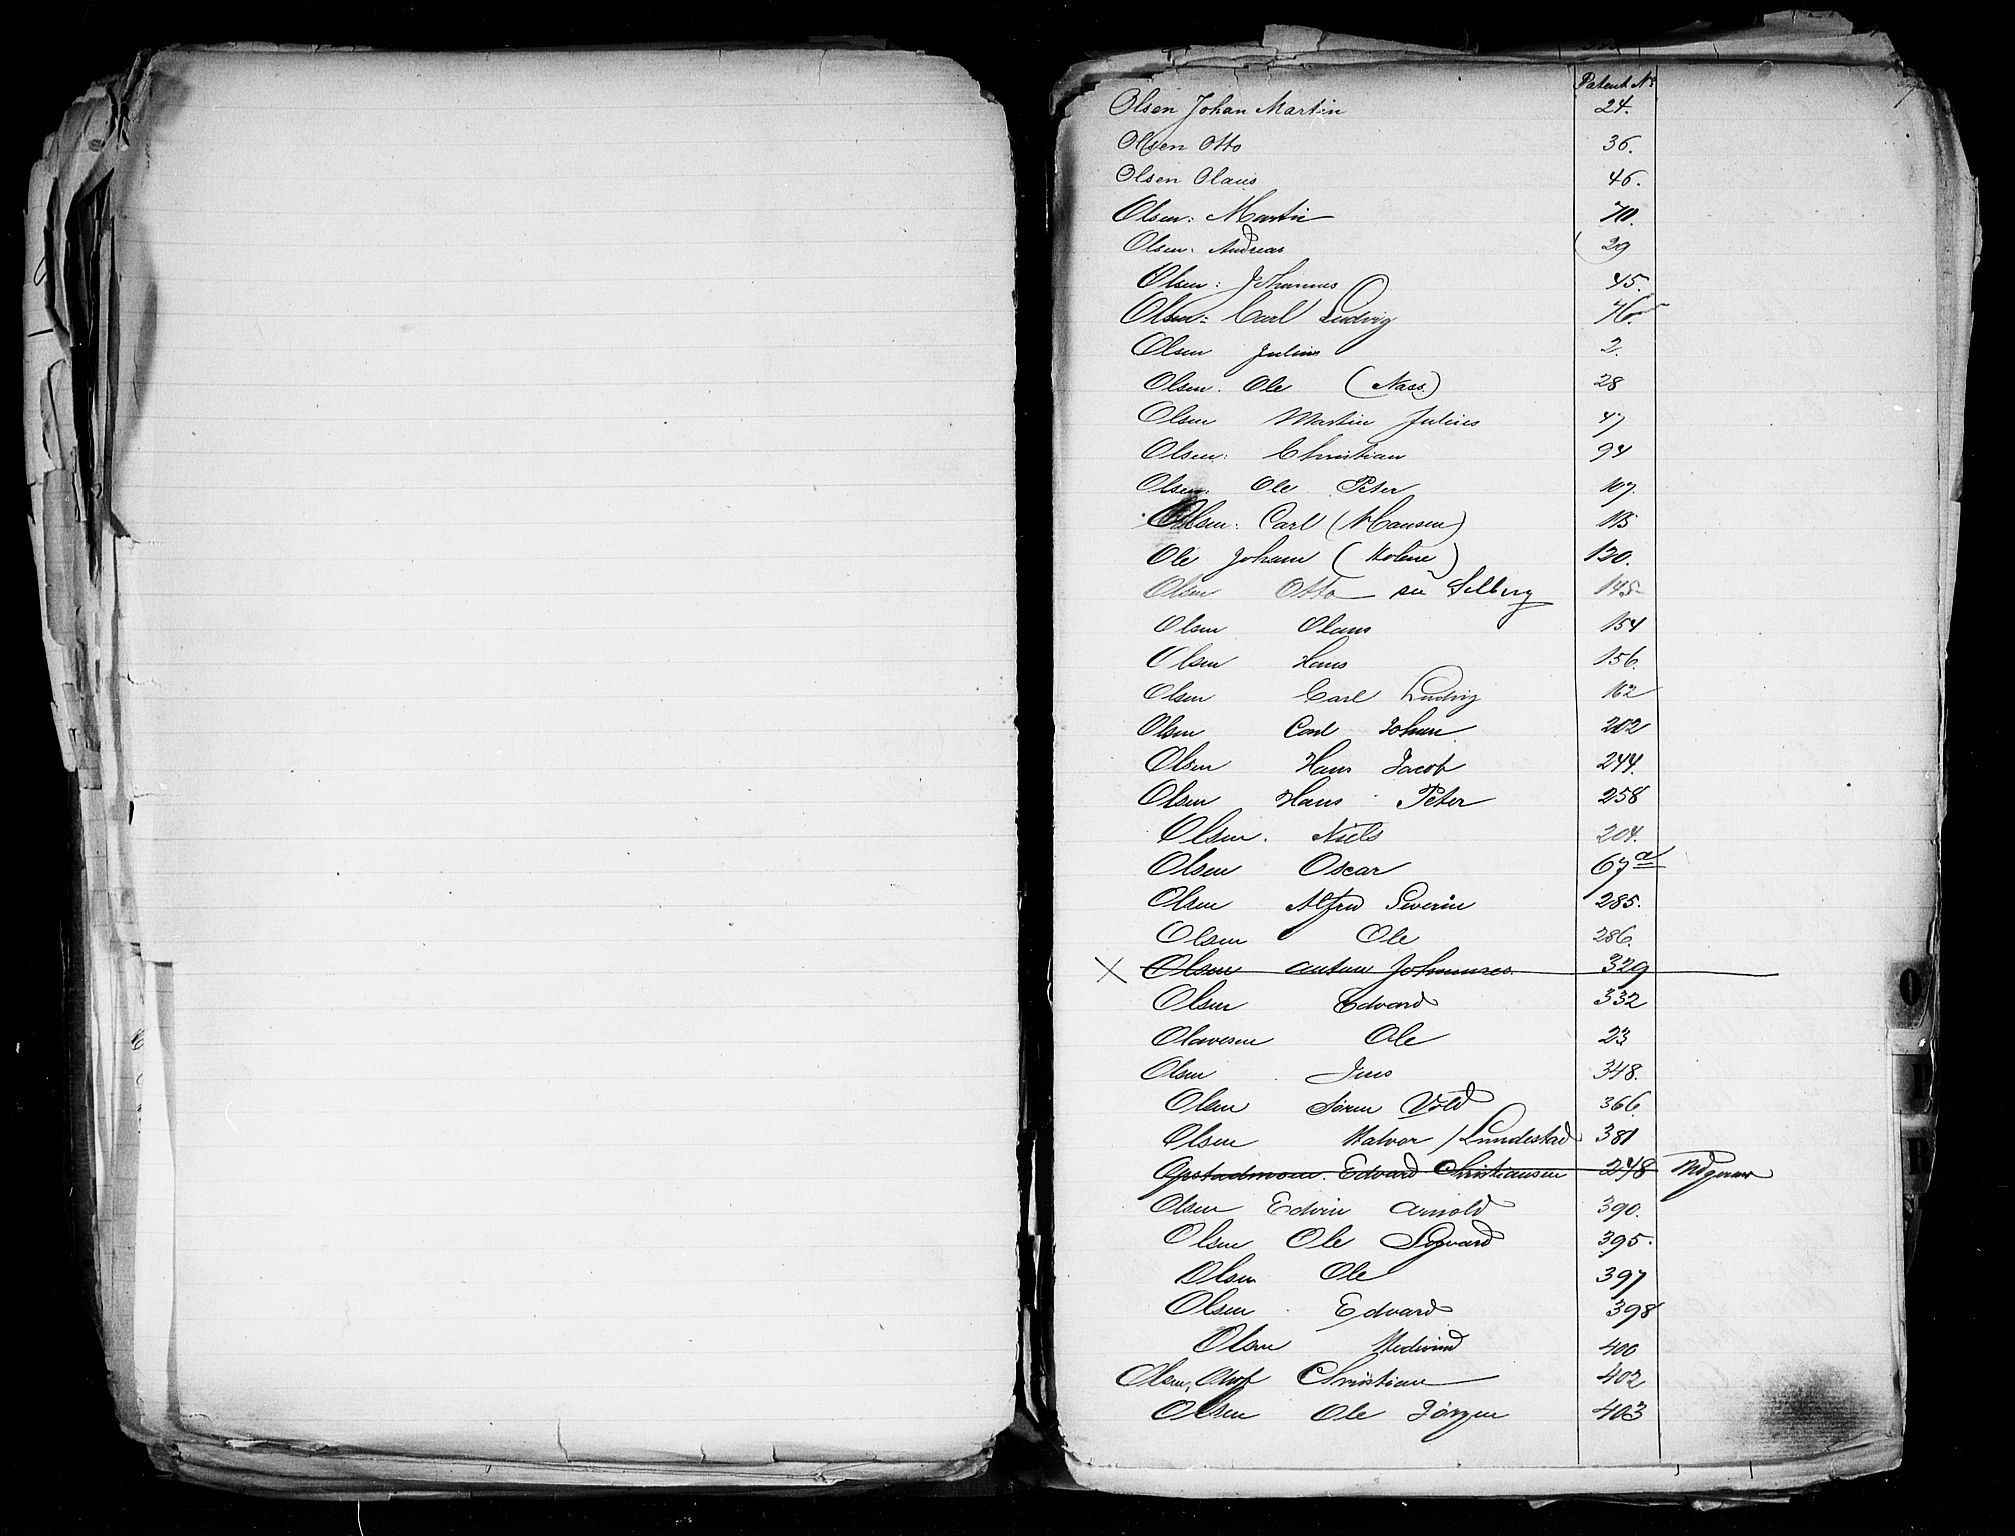 Patent No
Olsen Johan Martin 24.
Olsen Otto 36.
Olsen Olaus 46.
Olsen: Martin 70.
Olsen: Andreas 29
Olsen: Johannes 45.
Olsen: Carl Ludvig 76.
Olsen Julius 2.
Olsen. Ole (Nass) 28
Olsen Martin Julius 47
Olsen: Christian 94
Olsen: Ole Peter 107.
Olsen: Carl (Hansen) 115
Ole Johan (Holme) 120.
Olsen Otto se Selberg 145
Olsen Olaus 154
Olsen Hans 156.
Olsen Carl Ludvig 162
Olsen Carl Johan 202
Olsen Hans Jacob 244.
Olsen Hans Peter 258
Olsen. Niels 204.
Olsen Oscar 67 a
Olsen Alfred Severin 285.
Olsen Ole 286.
X Olsen Anton Johannes 329
Olsen Edvard 332
Olavesen Ole 23
Olsen Jens 348.
Olsen Søren Vold 366
Olsen Halvor / Lundestad 381
Opstadmoen. Edvard Christiansen 248
Olsen Edvin Arnold 390.
Olsen Ole Sigvard 395.
Olsen Ole 397
Olsen Edvard 398
Olsen 400
Olsen, Olaf Christian 402
Olsen Ole Jørgen 403